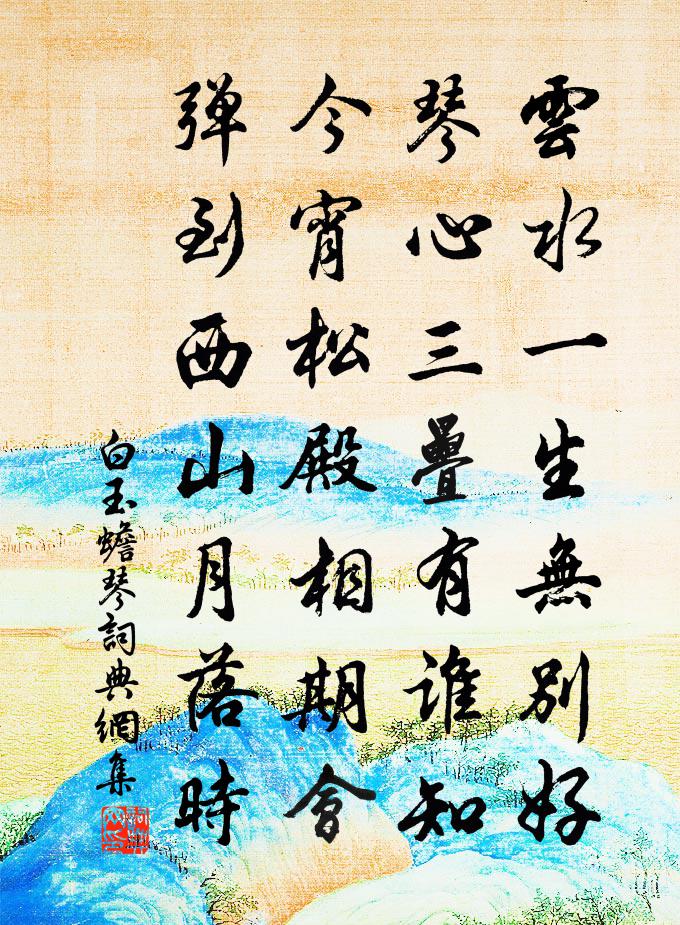 雲水一生無別好
琴心三疊有誰知
今宵松殿相期會
弹到西山月落時
白玉蟾琴詞典網集